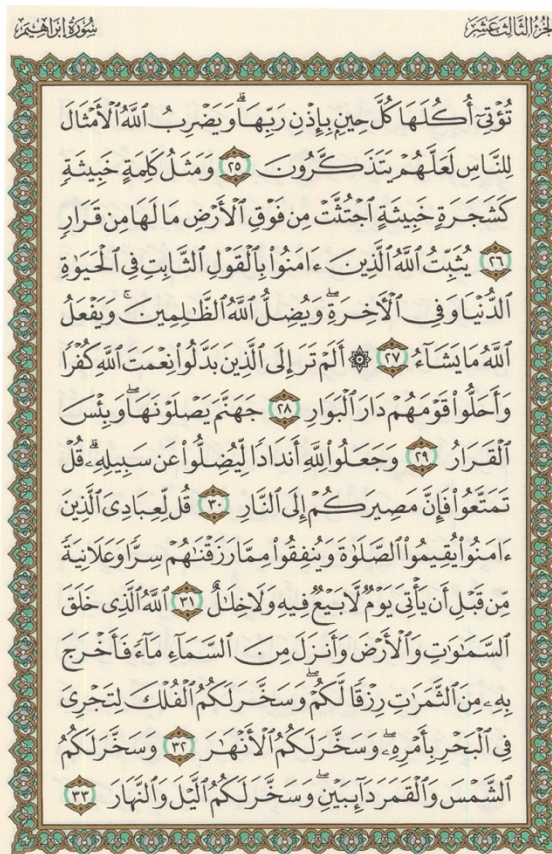 الجزء الثالث عشر
سورة إبراهيم
تُؤْتِىٓ أُكُلَهَا كُلَّ حِينٍۭ بِإِذْنِ رَبِّهَاۗ وَيَضْرِبُ ٱللَّهُ ٱلْأَمْثَالَ
لِلنَّاسِ لَعَلَّهُمْ يَتَذَكَّرُونَ ٢٥ وَمَثَلُ كَلِمَةٍ خَبِيثَةٍۢ
كَشَجَرَةٍ خَبِيثَةٍ ٱجْتُثَّتْ مِن فَوْقِ ٱلْأَرْضِ مَا لَهَا مِن قَرَارٍۢ
٢٦ يُثَبِّتُ ٱللَّهُ ٱلَّذِينَ ءَامَنُوا۟ بِٱلْقَوْلِ ٱلثَّابِتِ فِى ٱلْحَيَوٰةِ
ٱلدُّنْيَا وَفِى ٱلْءَاخِرَةِۖ وَيُضِلُّ ٱللَّهُ ٱلظَّٰلِمِينَۚ وَيَفْعَلُ
ٱللَّهُ مَا يَشَآءُ ٢٧ ۞ أَلَمْ تَرَ إِلَى ٱلَّذِينَ بَدَّلُوا۟ نِعْمَتَ ٱللَّهِ كُفْرًۭا
وَأَحَلُّوا۟ قَوْمَهُمْ دَارَ ٱلْبَوَارِ ٢٨ جَهَنَّمَ يَصْلَوْنَهَاۖ وَبِئْسَ
ٱلْقَرَارُ ٢٩ وَجَعَلُوا۟ لِلَّهِ أَندَادًۭا لِّيُضِلُّوا۟ عَن سَبِيلِهِۦۗ قُلْ
تَمَتَّعُوا۟ فَإِنَّ مَصِيرَكُمْ إِلَى ٱلنَّارِ ٣٠ قُل لِّعِبَادِىَ ٱلَّذِينَ
ءَامَنُوا۟ يُقِيمُوا۟ ٱلصَّلَوٰةَ وَيُنفِقُوا۟ مِمَّا رَزَقْنَٰهُمْ سِرًّۭا وَعَلَانِيَةًۭ
مِّن قَبْلِ أَن يَأْتِىَ يَوْمٌۭ لَّا بَيْعٌۭ فِيهِ وَلَا خِلَٰلٌ ٣١ ٱللَّهُ ٱلَّذِى خَلَقَ
ٱلسَّمَٰوَٰتِ وَٱلْأَرْضَ وَأَنزَلَ مِنَ ٱلسَّمَآءِ مَآءًۭ فَأَخْرَجَ
بِهِۦ مِنَ ٱلثَّمَرَٰتِ رِزْقًۭا لَّكُمْۖ وَسَخَّرَ لَكُمُ ٱلْفُلْكَ لِتَجْرِىَ
فِى ٱلْبَحْرِ بِأَمْرِهِۦۖ وَسَخَّرَ لَكُمُ ٱلْأَنْهَٰرَ ٣٢ وَسَخَّرَ لَكُمُ
ٱلشَّمْسَ وَٱلْقَمَرَ دَآئِبَيْنِۖ وَسَخَّرَ لَكُمُ ٱلَّيْلَ وَٱلنَّهَارَ ٣٣